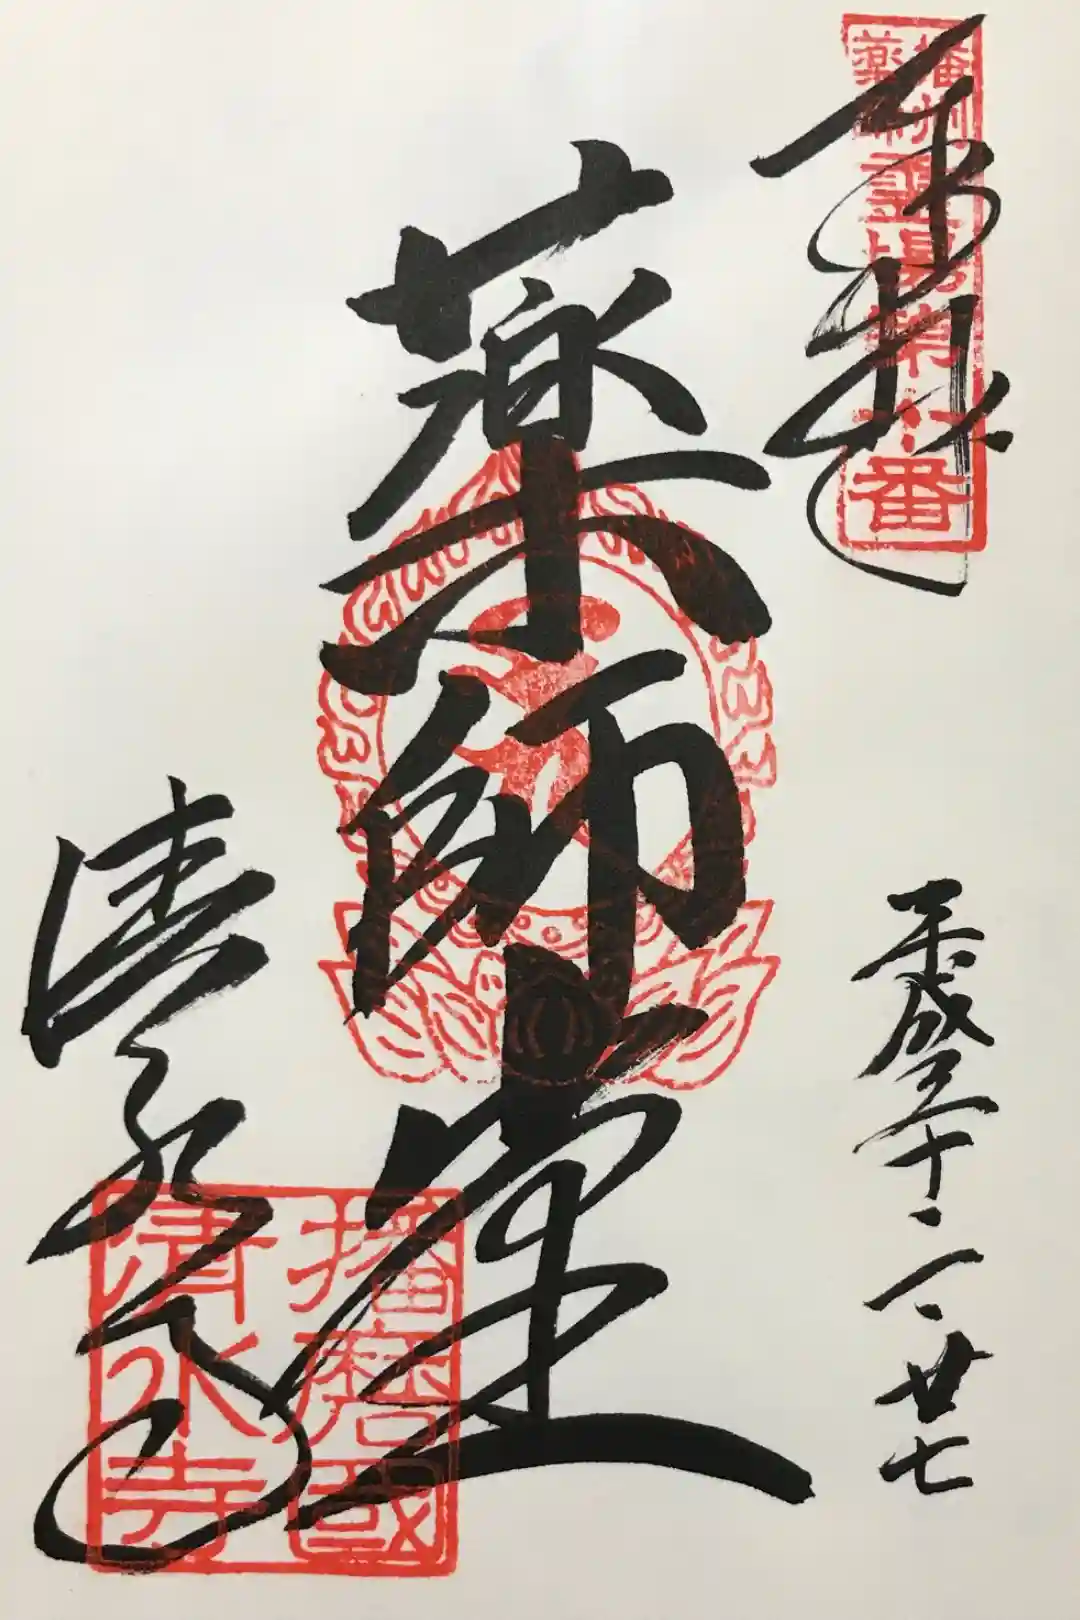 奉拝
播州
薬師
霊場第
番
平成三十
廿七
薬師堂
清水寺
播磨國
清水寺